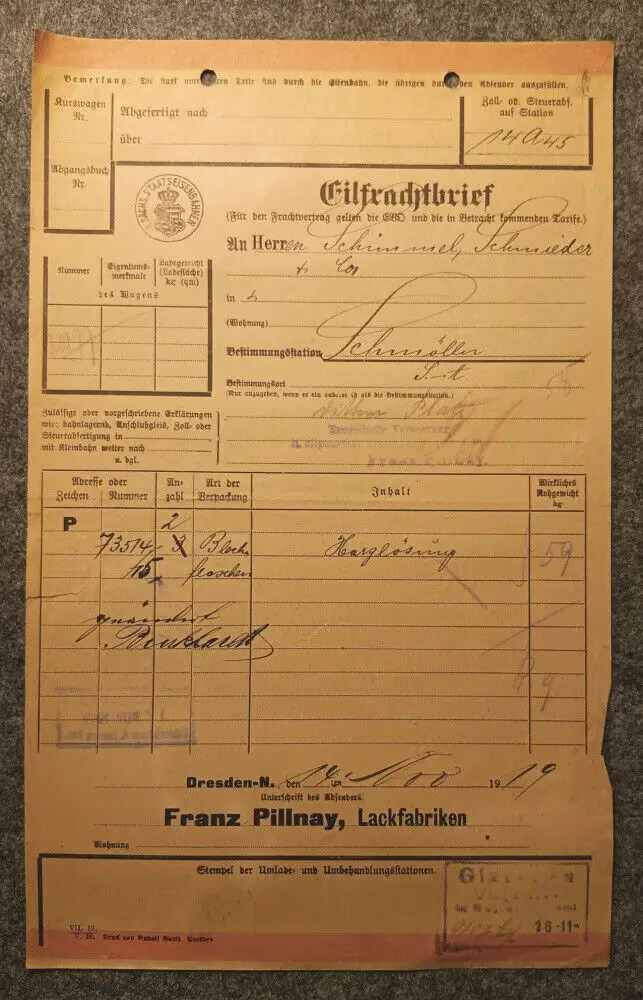 Bemerkung: Die stark umrahmten Teile sind durch die Eisenbahn, die übrigen durch den Absender auszufüllen.
Kurswagen Nr.
Abgefertigt nach
über
Zoll- od. Steuerabf. auf Station
14 a 45
Abgangsbuch Nr.
SÄCHS. STAATSEISENBAHNEN
Eilfrachtbrief
(Für den Frachtvertrag gelten die EVO und die in Betracht kommenden Tarife.)
An Herren Schimmel, Schmieder
& Co
in
(Wohnung)
Bestimmungsstation Schmölln
Bestimmungsort S.-A.
(Nur anzugeben, wenn er ein anderer ist als die Bestimmungsstation.)
58
Nummer
Eigentumsmerkmale
Ladegewicht (Ladefläche) kg (qm)
des Wagens
Zulässige oder vorgeschriebene Erklärungen
wie: bahnlagernd, Anschlußgleis, Zoll- oder
Steuerabfertigung in
mit Kleinbahn weiter nach
u. dgl.
Franz Pillnay.
Adresse oder
Zeichen Nummer
Anzahl
Art der Verpackung
Inhalt
Wirkliches Rohgewicht kg
P
2
73514/ 3 Blech Harzlösung 59
15 flaschen
9
Dresden-N., den 14ten Nov 1919
Unterschrift des Absenders.
Franz Pillnay, Lackfabriken
Wohnung
Stempel der Umlade- und Umbehandlungsstationen.
16-11-
VII. 19.
V. 18. Druck von Rudolf Barth, Dresden